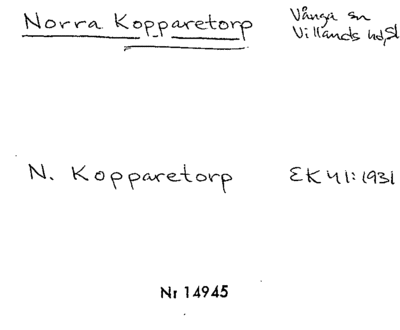 Norra Kopparetorp
Vånga sn
Villands hd, Sk
N. Kopparetorp
EK 41:1931
Nr 14945